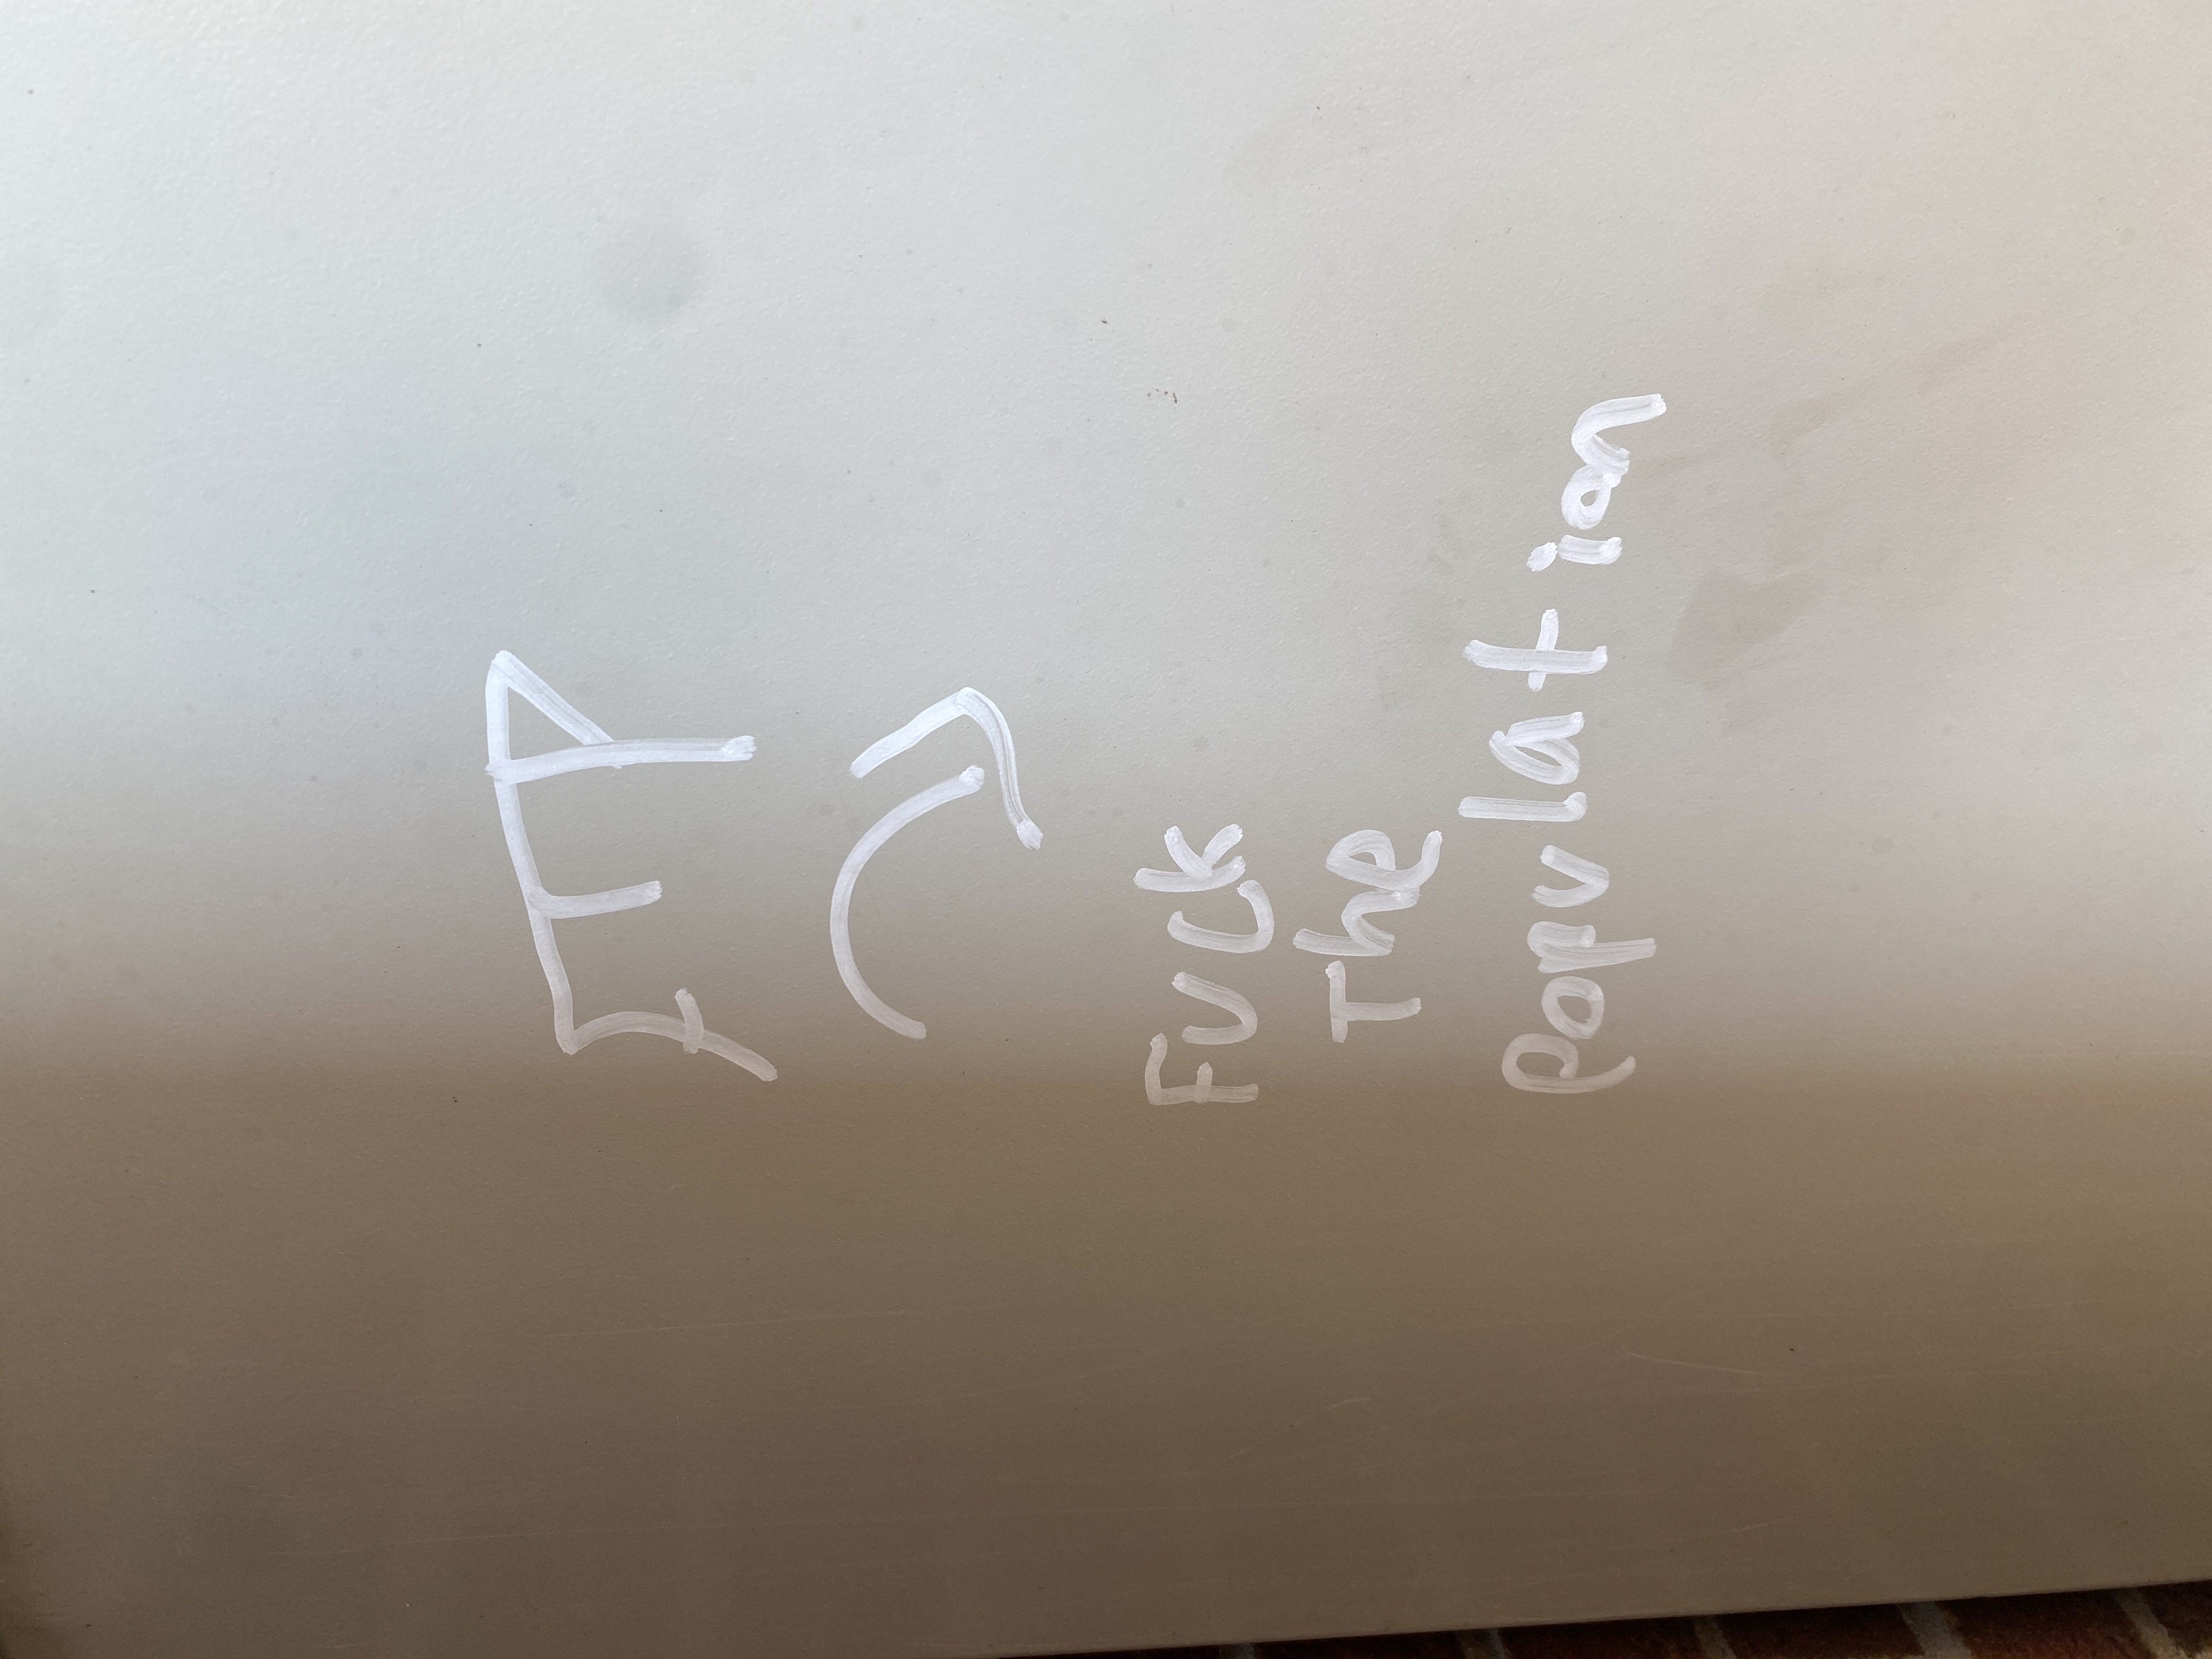 FTP
Fuck
The
Population